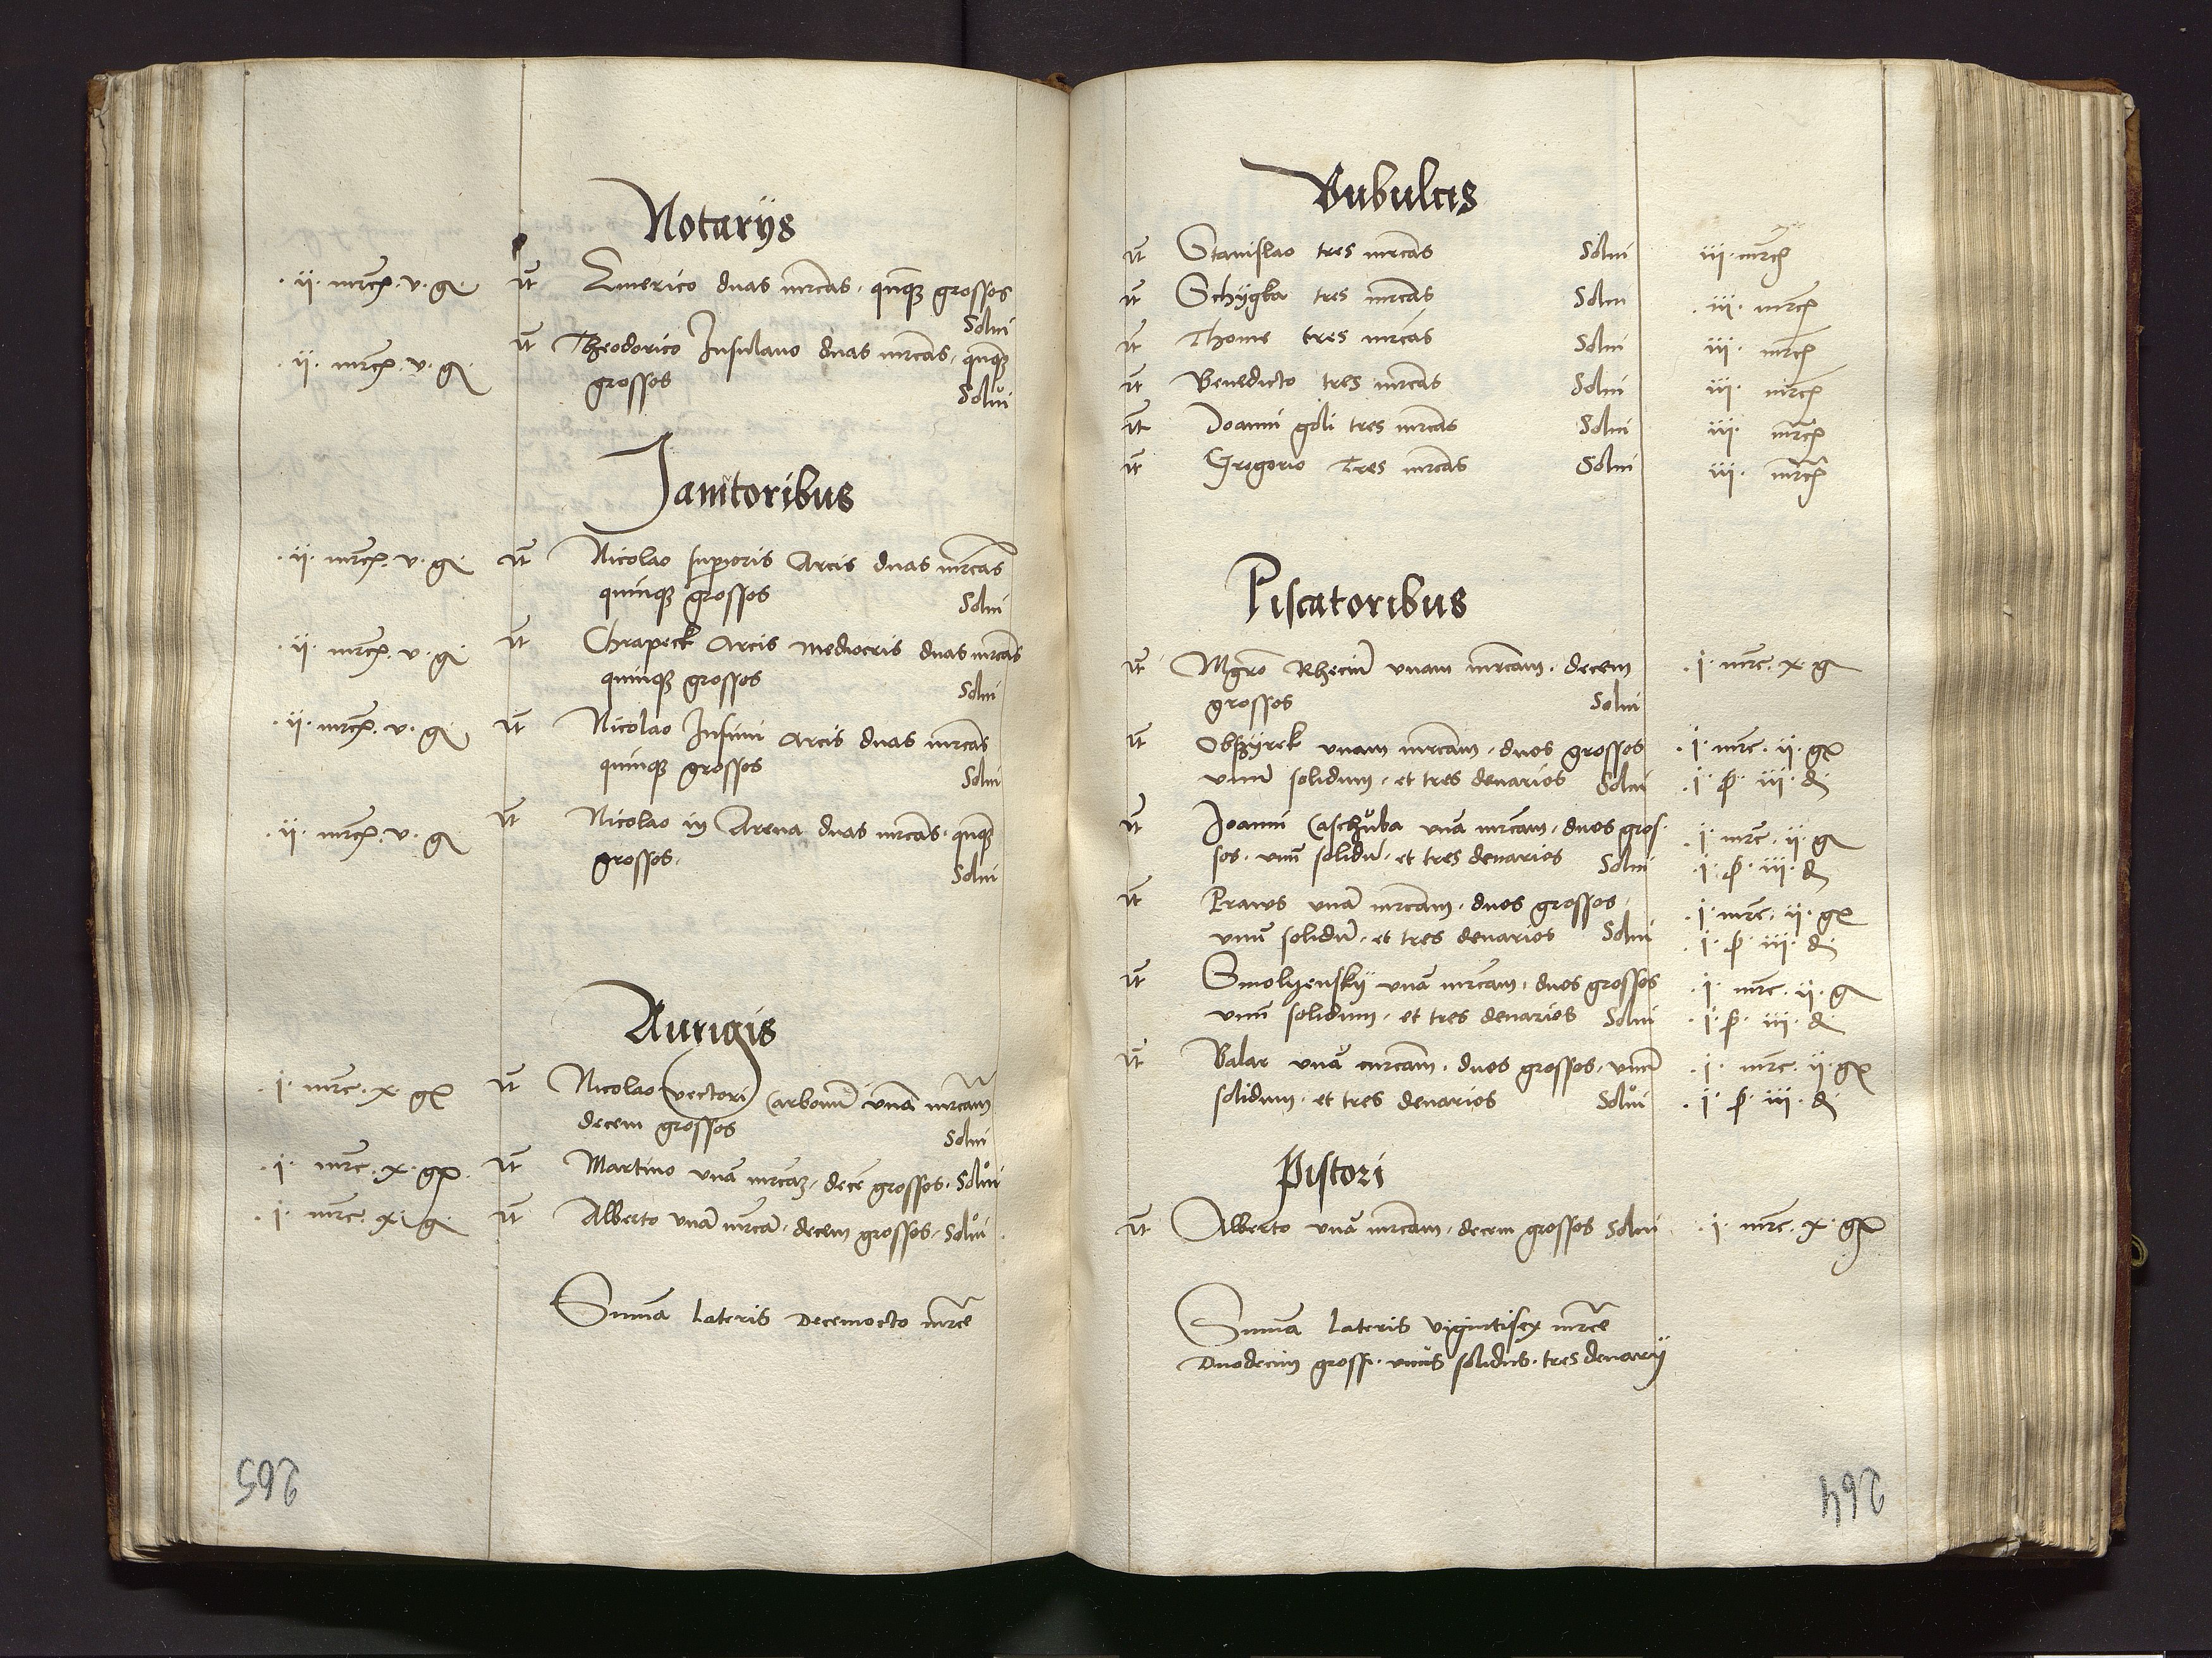 Notarijs
.ii. mrcs. v. gr. It Emerico duas mrcas. quinqz grossos
Solui
.ii. mrcs. v. gr. It Theodorico Insulano duas mrcas. quinqz
grossos
Solui
Janitoribus
.ii. mrcs. v. gr. It Nicolao superioris Arcis duas mrcas
quinqz grossos Solui
.ii. mrcs. v. gr. It Chrapeck Arcis mediocris duas mrcas
quinqz grossos Solui
.ii. mrcs. v. gr. It Nicolao Infimi arcis duas mrcas
quinqz grossos Solui
.ii. mrcs. v. gr. It Nicolao in Arena duas mrcas. quinqz
grossos. Solui
Aurigis
.i. mrc. x. gr It Nicolao vectori Carbonū vnā mrcam
decem grossos Solui
.i. mrc. x. gr. It Martino vnā mrcaz. decē grossos. Solui
.i. mrc. x. gr. It Alberto vnā mrcā. decem grossos. Solui.
Summa lateris Decemocto mrce
265
Bubulcis
It Stanislao tres mrcas Solui iii. mrcs
It Schygka tres mrcas Solui .iii. mrcs
It Thome tres mrcas Solui iii. mrcs
It Benedicto tres mrcas Solui iii. mrcs
It Joanni goli tres mrcas Solui iii. mrcs
It Gregorio Tres mrcas Solui iii. mrcs
Piscatoribus
It Mgro Rheciū vnam mrcam. decem .i. mrc. x. gr
grossos Solui
It Obszyrek vnam mrcam. duos grossos .i. mrc. ii. gr
vnū solidum. et tres denarios Solui .i. ß. iii. d.
It Joanni Caschuba vnā mrcam. duos gros- .i. mrc. ii. gr
sos. vnū solidū. et tres denarios Solui .i. ß. iii. d
It Praws vnā mrcam. duos grossos. .i. mrc. ii. gr
vnū solidū. et tres denarios Solui .i. ß. iii. d.
It Smolyensky vnā mrcam. duos grossos .i. mrc. ii. gr
vnū solidum. et tres denarios Solui .i. ß. iii. d.
It Balar vnā mrcam. duos grossos. vnū .i. mrc. ii. gr
solidum. et tres denarios Solui .i. ß. iii. d.
Pistori
It Alberto vnā mrcam. decem grossos Solui .i. mrc. x. gr
Summa lateris vigintisex mrce
Duodecim gross. vnus solidus. tres denarij
264